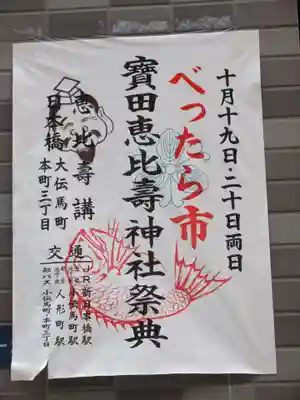 十月十九日・二十日両日
べったら市
寳田恵比壽神社祭典
恵比壽講
日本橋
大伝馬町
本町三丁目
交通
JR新日本橋駅
小伝馬町駅
人形町駅
都バス 小伝馬町・本町三丁目